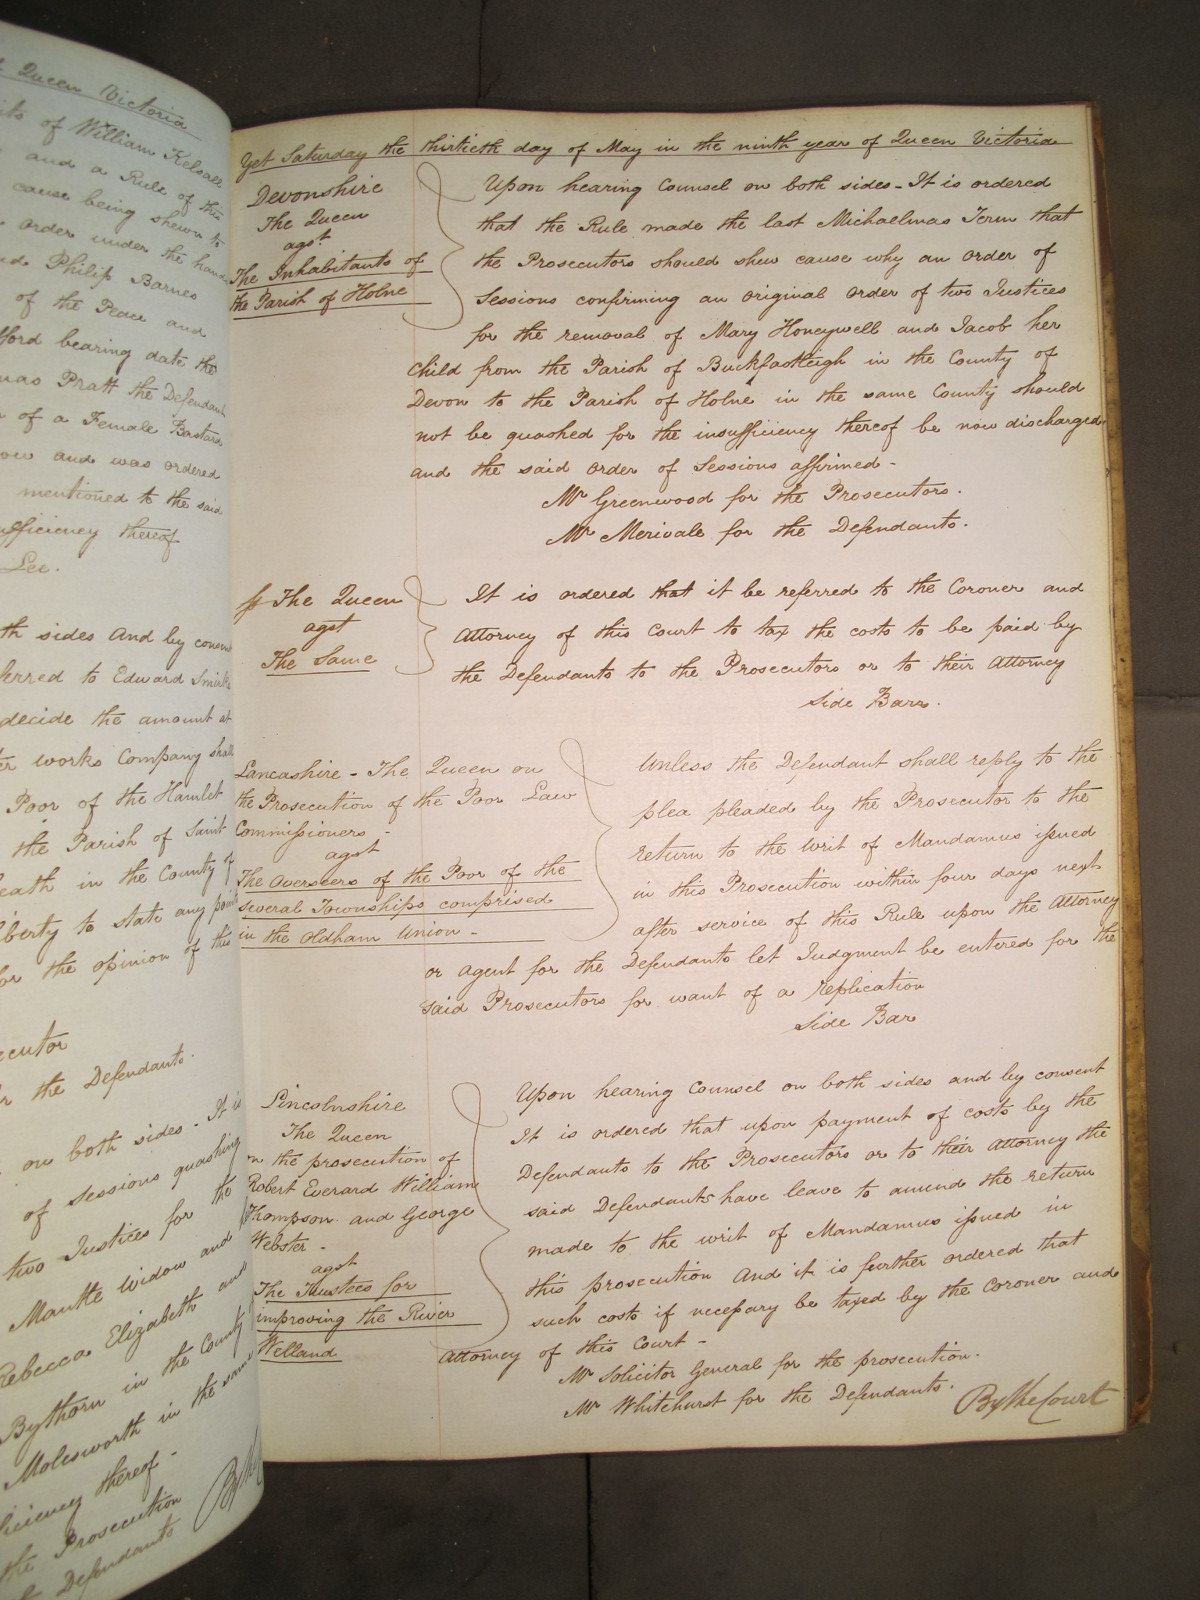 Queen Victoria
of William Kelsall
and a Rule of this
cause being shewn to
order under the hands
Philip Barnes
of the Peace and
bearing date the
Pratt the Defendant
of a Female Bastard
and was ordered
mentioned to the said
thereof
Lee.
sides And by consent
to Edward Smirke
decide the amount at
works Company shall
Poor of the Hamlet
the Parish of Saint
in the County of
liberty to state any point
for the opinion of this
the Defendants.
on both sides - It is
of Sessions quashing
two Justices for the
Mantle Widow and
Rebecca Elizabeth and
Bythorn in the County
Molesworth in the same
thereof -
the Prosecution
Defendants
Yet Saturday the thirtieth day of May in the ninth year of Queen Victoria
Devonshire
The Queen
agst
The Inhabitants of
the Parish of Holne
Upon hearing Counsel on both sides - It is ordered
that the Rule made the last Michaelmas Term that
the Prosecutors should shew cause why an order of
Sessions confirming an original order of two Justices
for the removal of Mary Honeywell and Jacob her
child from the Parish of Buckfastleigh in the County of
Devon to the Parish of Holne in the same County should
not be quashed for the insufficiency thereof be now discharged
and the said order of Sessions affirmed -
Mr Greenwood for the Prosecutors.
Mr Merivale for the Defendants.
The Queen
agst
The Same
It is ordered that it be referred to the Coroner and
Attorney of this Court to tax the costs to be paid by
the Defendants to the Prosecutors or to their Attorney
Side Barr.
Lancashire - The Queen on
the Prosecution of the Poor Law
Commissioners -
agst
The Overseers of the Poor of the
several Townships comprised
in the Oldham Union -
Unless the Defendant shall reply to the
plea pleaded by the Prosecutor to the
return to the writ of Mandamus issued
in this Prosecution within four days next
after service of this Rule upon the Attorney
or agent for the Defendants let Judgment be entered for the
said Prosecutors for want of a replication
Side Bar
Lincolnshire
The Queen
on the prosecution of
Robert Everard William
Thompson and George
Webster -
agst
The Trustees for
improving the River
Welland
Upon hearing Counsel on both sides and by consent
It is ordered that upon payment of costs by the
Defendants to the Prosecutors or to their Attorney the
said Defendants have leave to amend the return
made to the writ of Mandamus issued in
this prosecution And it is further ordered that
such costs if necessary be taxed by the Coroner and
Attorney of this Court -
Mr Solicitor General for the prosecution.
Mr Whitehurst for the Defendants.
By the Court